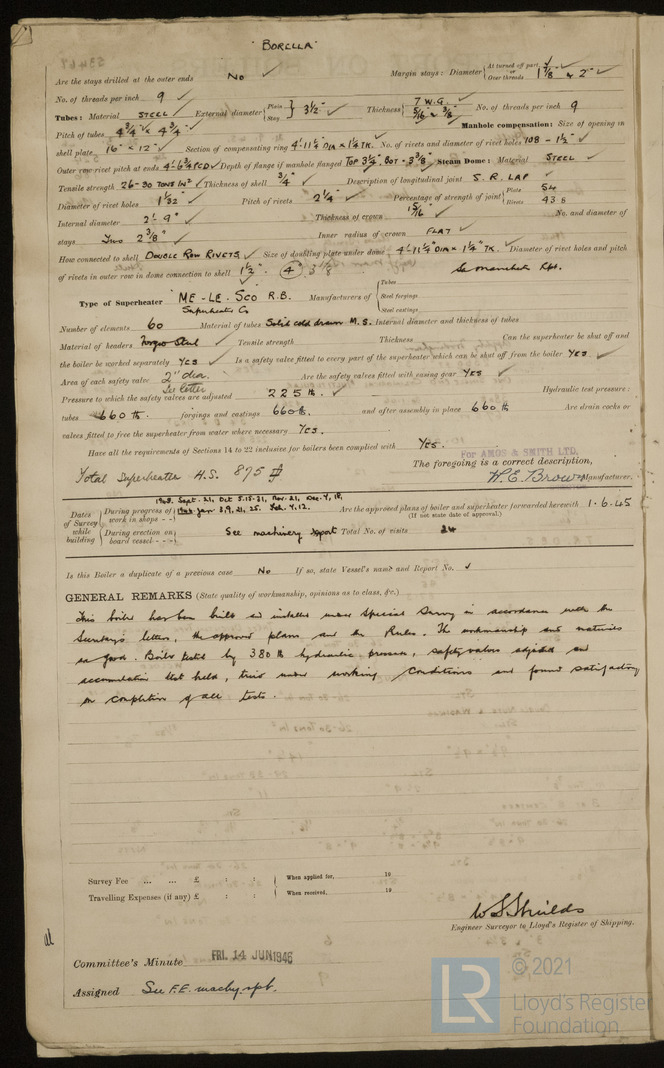 "BORELLA"
Are the stays drilled at the outer ends No ✓ Margin stays: Diameter { At turned off part ✓ or Over threads 1 7/8" & 2" ✓
No. of threads per inch 9 ✓
Tubes: Material STEEL ✓ External diameter { Plain Stay } 3½" ✓ Thickness { 7 W.G. ✓ 5/16" & 3/8" ✓ No. of threads per inch 9
Pitch of tubes 4¾" x 4¾" ✓ Manhole compensation: Size of opening in
shell plate 16" x 12" ✓ Section of compensating ring 4'-11¼" DIA x 1¼ TK. No. of rivets and diameter of rivet holes 108 - 1½" ✓
Outer row rivet pitch at ends 4'-6¾ PCD ✓ Depth of flange if manhole flanged TOP 3¾". BOT - 3⅜ Steam Dome: Material STEEL ✓
Tensile strength 26-30 TONS IN² ✓ Thickness of shell ¾" ✓ Description of longitudinal joint S. R. LAP ✓
Diameter of rivet holes 1 1/32" ✓ Pitch of rivets 2¼" ✓ Percentage of strength of joint { Plate 54 Rivets 43.8
Internal diameter 2'- 9" ✓ Thickness of crown 15/16" ✓ No. and diameter of
stays Two 2⅜" ✓ Inner radius of crown FLAT ✓
How connected to shell DOUBLE ROW RIVETS ✓ Size of doubling plate under dome 4'-11¼" DIA x 1¼" TK. ✓ Diameter of rivet holes and pitch
of rivets in outer row in dome connection to shell 1½". 4" 3⅛ See Manchester Rpt.
Type of Superheater "ME-LE-SCO R.B. Superheater Co Manufacturers of { Tubes Steel forgings Steel castings
Number of elements 60 Material of tubes Solid cold drawn M.S. Internal diameter and thickness of tubes
Material of headers Forged Steel ✓ Tensile strength Thickness Can the superheater be shut off and
the boiler be worked separately YES ✓ Is a safety valve fitted to every part of the superheater which can be shut off from the boiler YES. ✓
Area of each safety valve 2" dia. See letter Are the safety valves fitted with easing gear YES ✓
Pressure to which the safety valves are adjusted 225 lb. ✓ Hydraulic test pressure:
tubes 660 lb. forgings and castings 660 lb. and after assembly in place 660 lb Are drain cocks or
valves fitted to free the superheater from water where necessary YES.
Have all the requirements of Sections 14 to 22 inclusive for boilers been complied with YES.
FOR AMOS & SMITH LTD.
Total Superheater H.S. 875 □' The foregoing is a correct description,
W.E. Brown Manufacturer.
Dates of Survey while building { During progress of work in shops - - } Sept. 21, Oct 5.15.31, Nov. 21, Dec. 4, 18, Jan 3, 9, 21, 25. Feb. 4, 12. Are the approved plans of boiler and superheater forwarded herewith 1.6.45
(If not state date of approval.)
{ During erection on board vessel - - - } See machinery report Total No. of visits 24
Is this Boiler a duplicate of a previous case No If so, state Vessel's name and Report No. ✓
GENERAL REMARKS (State quality of workmanship, opinions as to class, &c.)
This boiler has been built and installed under Special Survey in accordance with the
Secretary's letters, the approved plans and the Rules. The workmanship and materials
is good. Boiler tested by 380 lb hydraulic pressure, safety valves adjusted and
accumulation test held, tried under working conditions and found satisfactory
on completion of all tests.
Survey Fee ... ... £ : : { When applied for, 19
Travelling Expenses (if any) £ : : { When received, 19
W S Shields
Engineer Surveyor to Lloyd's Register of Shipping.
Committee's Minute FRI. 14 JUN 1946
Assigned See F.E. machy. rpt.
LR © 2021
Lloyd's Register
Foundation